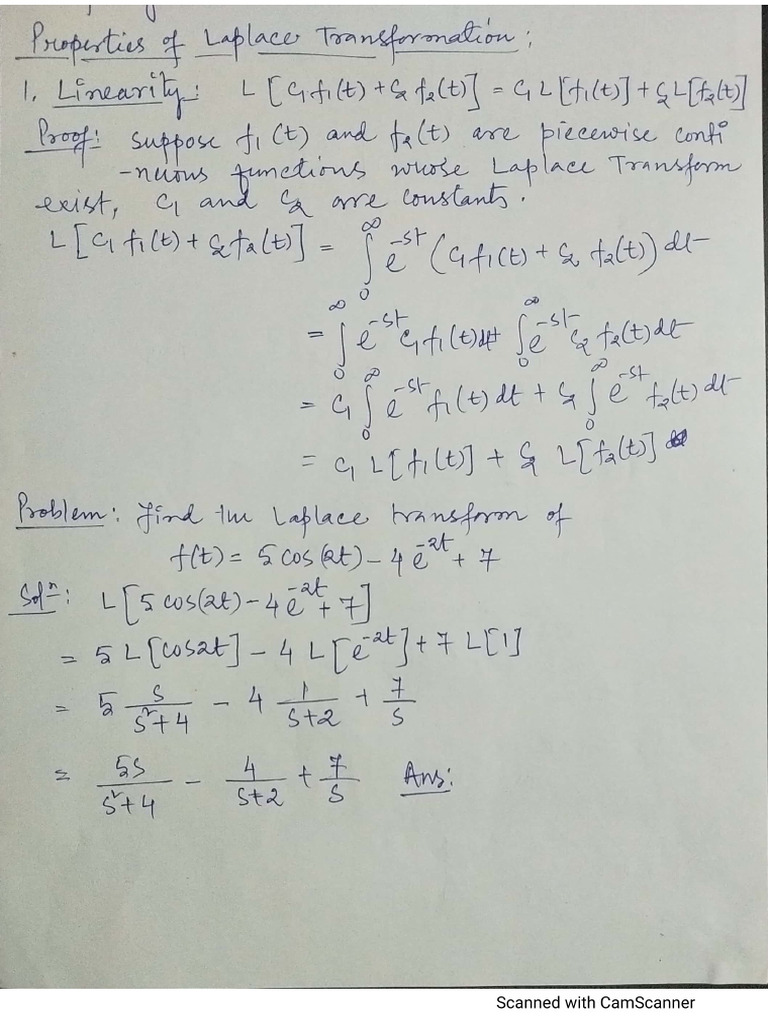 Properties of Laplace Transformation:
1. Linearity: L[c₁f₁(t) + c₂f₂(t)] = c₁L[f₁(t)] + c₂L[f₂(t)]
Proof: Suppose f₁(t) and f₂(t) are piecewise conti
-nuous functions whose Laplace Transform
exist, c₁ and c₂ are constants.
L[c₁f₁(t) + c₂f₂(t)] = ∫₀^∞ e^{-st} (c₁f₁(t) + c₂ f₂(t)) dt
= ∫₀^∞ e^{-st} c₁f₁(t)dt + ∫₀^∞ e^{-st} c₂ f₂(t)dt
= c₁ ∫₀^∞ e^{-st} f₁(t) dt + c₂ ∫₀^∞ e^{-st} f₂(t) dt
= c₁ L[f₁(t)] + c₂ L[f₂(t)]
Problem: Find the Laplace transform of
f(t) = 5 cos(2t) - 4 e^{-2t} + 7
Solⁿ: L[5 cos(2t) - 4 e^{-2t} + 7]
= 5 L[cos2t] - 4 L[e^{-2t}] + 7 L[1]
= 5 s/(s²+4) - 4 1/(s+2) + 7/s
= 5s/(s²+4) - 4/(s+2) + 7/s Ans:
Scanned with CamScanner